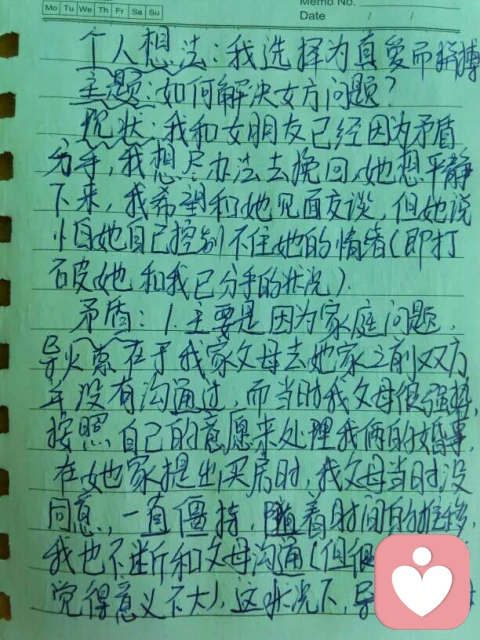 Mo Tu We Th Fr Sa Su
Memo No.
Date / /
个人想法：我选择为真爱而拼搏
主题：如何解决女方问题？
现状：我和女朋友已经因为矛盾
分手，我想尽办法去挽回，她想平静
下来，我希望和她见面交谈，但她说
怕她自己控制不住她的情绪（即打
破她和我已分手的状况）．
矛盾：1. 主要是因为家庭问题，
导火索在于我家父母去她家之前双方
并没有沟通过，而当时我父母很强势，
按照自己的意愿来处理我俩的婚事，
在她家提出买房时，我父母当时没
同意，一直僵持，随着时间的推移，
我也不断和父母沟通（但
觉得意义不大），这状况下，导